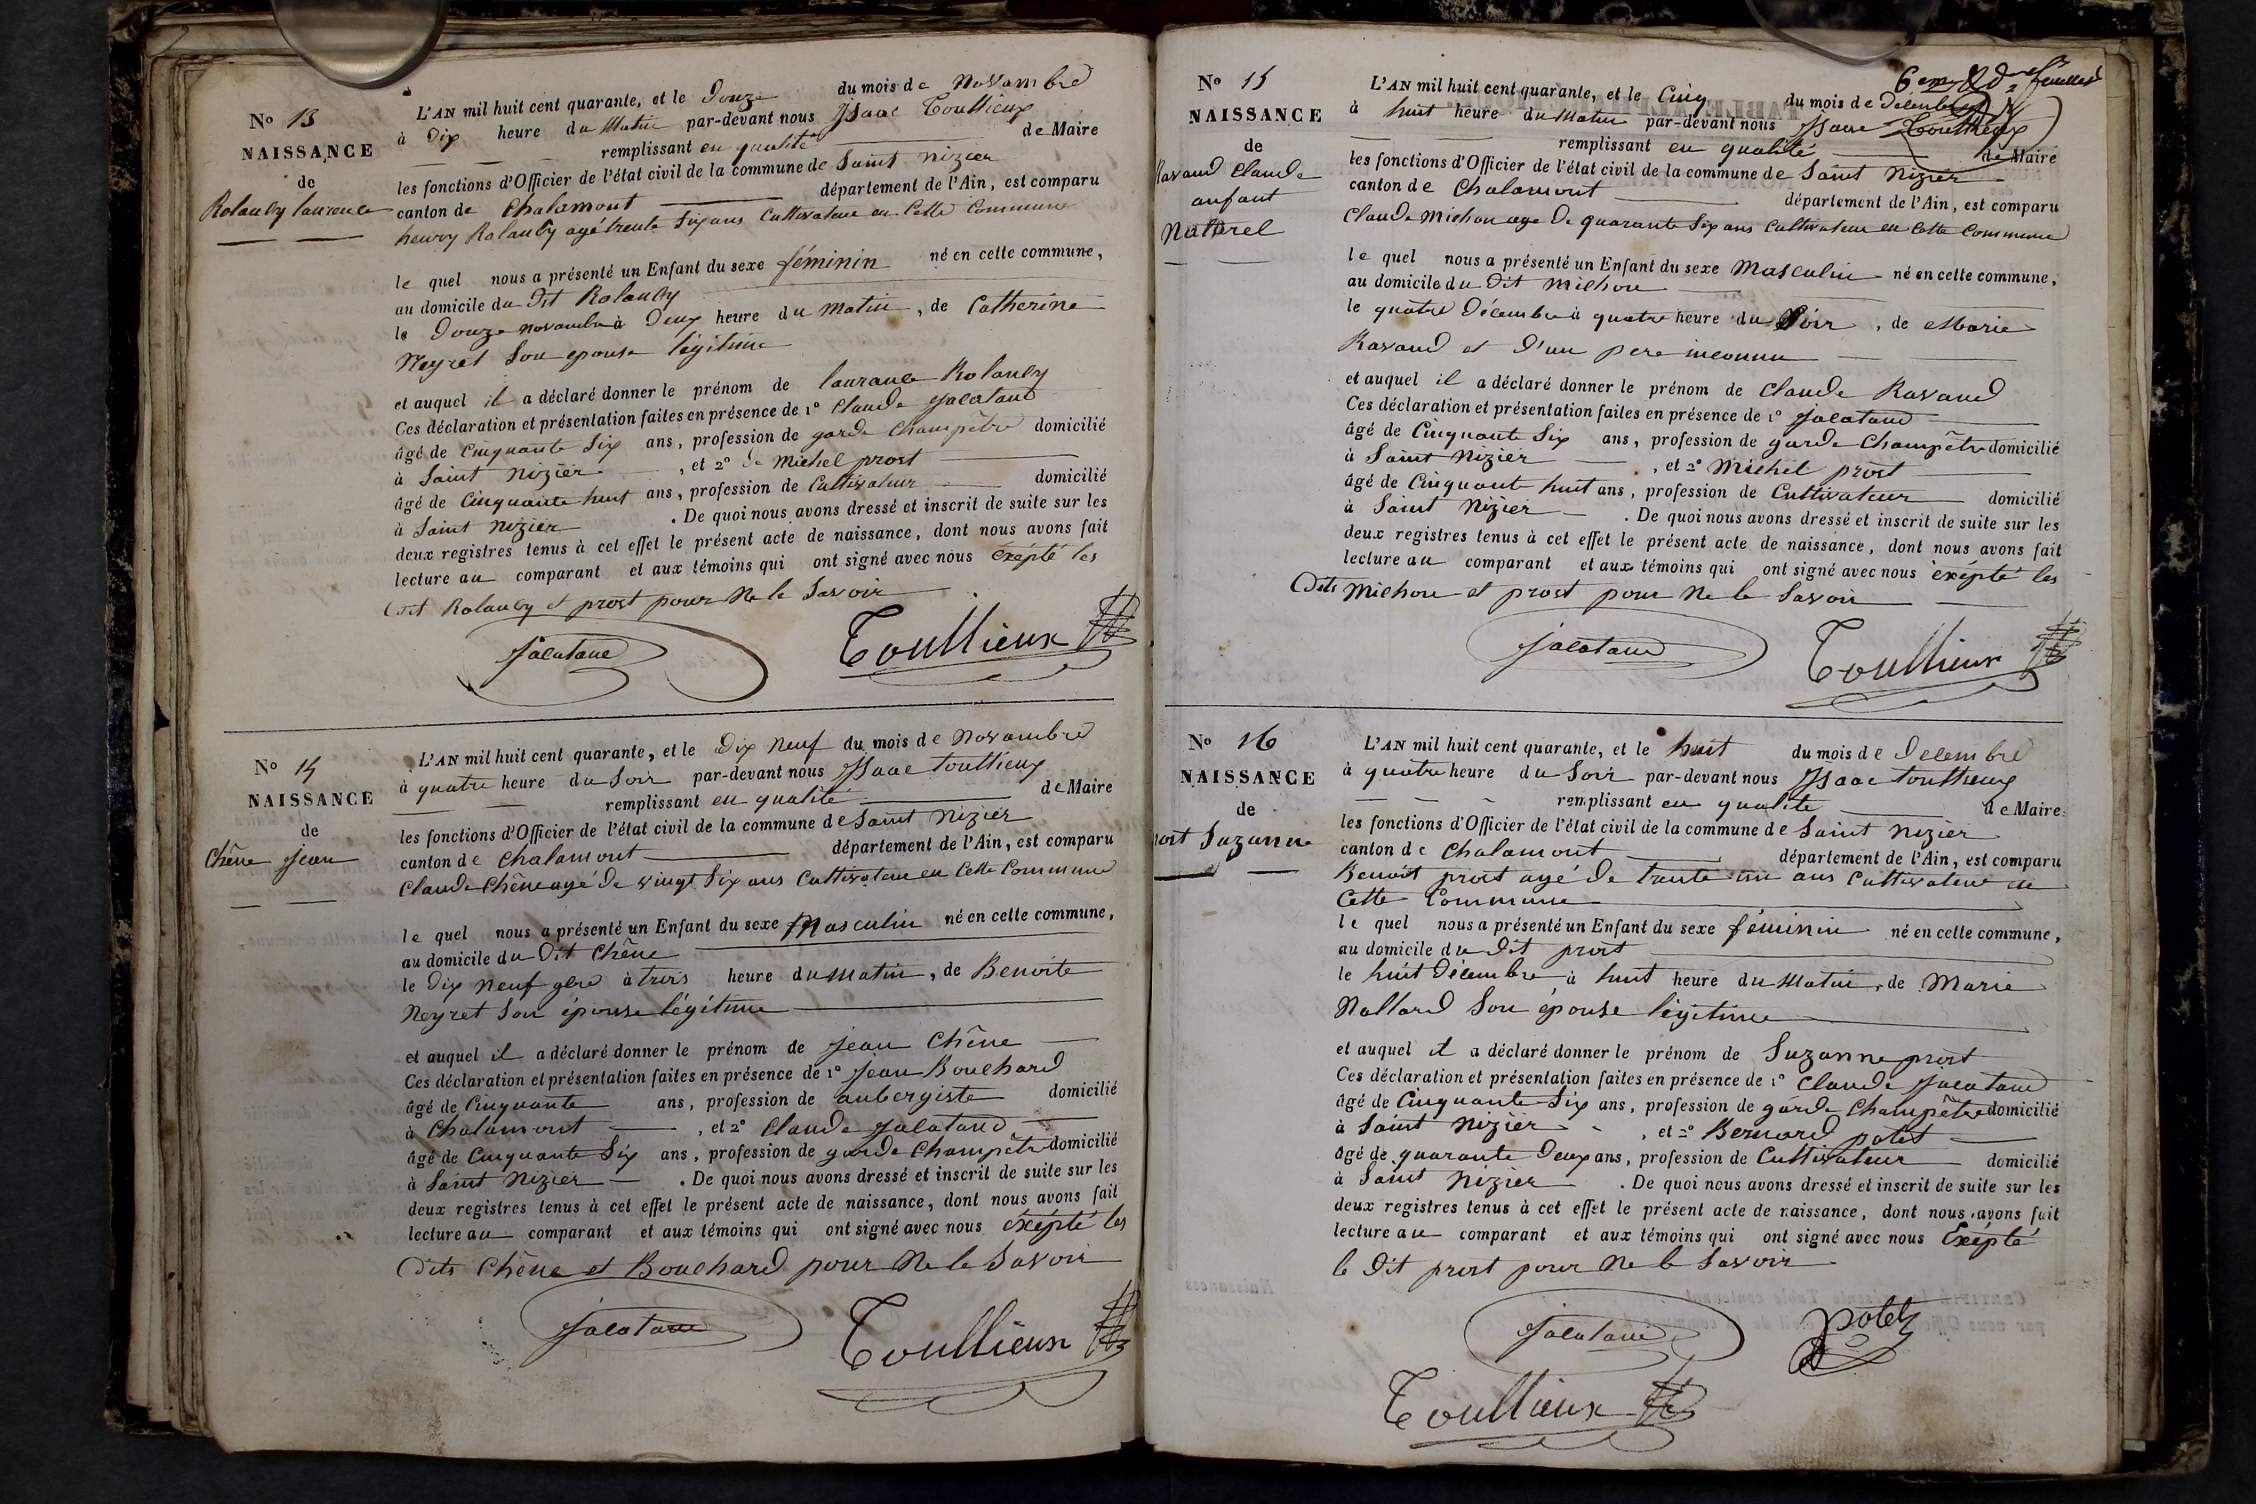 N° 13
NAISSANCE
de
Rolandy laurence
L'AN mil huit cent quarante, et le Douze du mois de Novambre
à Dix heure du Matin par-devant nous Ysaac Toullieux
remplissant en qualité de Maire
les fonctions d'Officier de l'état civil de la commune de Saint Nizier
canton de Chalamont département de l'Ain, est comparu
henry Rolandy agé trente Six ans Cultivateur en Cette Commune
le quel nous a présenté un Enfant du sexe féminin né en cette commune,
au domicile du Dit Rolandy
le Douze novambre à Deux heure du Matin, de Catherine
Neyret Son epouse légitime
et auquel il a déclaré donner le prénom de laurance Rolandy
Ces déclaration et présentation faites en présence de 1° Claude Jacataud
âgé de Cinquante Six ans, profession de garde Champêtre domicilié
à Saint Nizier, et 2° de Michel prost
âgé de Cinquante huit ans, profession de Cultivateur domicilié
à Saint Nizier. De quoi nous avons dressé et inscrit de suite sur les
deux registres tenus à cet effet le présent acte de naissance, dont nous avons fait
lecture au comparant et aux témoins qui ont signé avec nous éxépté les
Dit Rolandy et prost pour Ne le Savoir
Jacataud Toullieux
N° 14
NAISSANCE
de
Chêne Jean
L'AN mil huit cent quarante, et le Dix Neuf du mois de Novambre
à quatre heure du Soir par-devant nous Ysaac Toullieux
remplissant en qualité de Maire
les fonctions d'Officier de l'état civil de la commune de Saint Nizier
canton de Chalamont département de l'Ain, est comparu
Claude Chêne agé de vingt Six ans Cultivateur en Cette Commune
le quel nous a présenté un Enfant du sexe Masculin né en cette commune,
au domicile du Dit Chêne
le Dix Neuf gbre à trois heure du Matin, de Benoite
Neyret Son épouse légitime
et auquel il a déclaré donner le prénom de Jean Chêne
Ces déclaration et présentation faites en présence de 1° Jean Bouchard
âgé de Cinquante ans, profession de aubergiste domicilié
à Chalamont, et 2° Claude Jacataud
âgé de Cinquante Six ans, profession de garde Champêtre domicilié
à Saint Nizier. De quoi nous avons dressé et inscrit de suite sur les
deux registres tenus à cet effet le présent acte de naissance, dont nous avons fait
lecture au comparant et aux témoins qui ont signé avec nous éxépté les
Dits Chêne et Bouchard pour Ne le Savoir
Jacataud Toullieux
6eme & de feuillet
N° 15
NAISSANCE
de
Ravaud Claude
anfant
Naturel
L'AN mil huit cent quarante, et le Cinq du mois de Décembre
à huit heure du Matin par-devant nous Ysaac Toullieux
remplissant en qualité de Maire
les fonctions d'Officier de l'état civil de la commune de Saint Nizier
canton de Chalamont département de l'Ain, est comparu
Claude Michon age de quarante Six ans Cultivateur en Cette Commune
le quel nous a présenté un Enfant du sexe Masculin né en cette commune,
au domicile du Dit Michon
le quatre Décembre à quatre heure du Soir, de Marie
Ravaud et D'un pere inconnu
et auquel il a déclaré donner le prénom de Claude Ravaud
Ces déclaration et présentation faites en présence de 1° Jacataud
âgé de Cinquante Six ans, profession de garde Champêtre domicilié
à Saint Nizier, et 2° Michel prost
âgé de Cinquante huit ans, profession de Cultivateur domicilié
à Saint Nizier. De quoi nous avons dressé et inscrit de suite sur les
deux registres tenus à cet effet le présent acte de naissance, dont nous avons fait
lecture au comparant et aux témoins qui ont signé avec nous éxépté les
Dits Michon et prost pour Ne le Savoir
Jacataud Toullieux
N° 16
NAISSANCE
de
Suzanne
L'AN mil huit cent quarante, et le huit du mois de Decembre
à quatre heure du Soir par-devant nous Ysaac Toullieux
remplissant en qualité de Maire
les fonctions d'Officier de l'état civil de la commune de Saint Nizier
canton de Chalamont département de l'Ain, est comparu
Benoit prost agé de trente un ans Cultivateur en
Cette Commune
le quel nous a présenté un Enfant du sexe féminin né en cette commune,
au domicile du Dit prost
le huit Décembre à huit heure du Matin, de Marie
Nallard Son épouse légitime
et auquel il a déclaré donner le prénom de Suzanne prost
Ces déclaration et présentation faites en présence de 1° Claude Jacataud
âgé de Cinquante Six ans, profession de garde Champêtre domicilié
à Saint Nizier, et 2° Bernard polet
âgé de quarante Deux ans, profession de Cultivateur domicilié
à Saint Nizier. De quoi nous avons dressé et inscrit de suite sur les
deux registres tenus à cet effet le présent acte de naissance, dont nous avons fait
lecture au comparant et aux témoins qui ont signé avec nous Exépté
le Dit prost pour Ne le Savoir
Jacataud polet
Toullieux